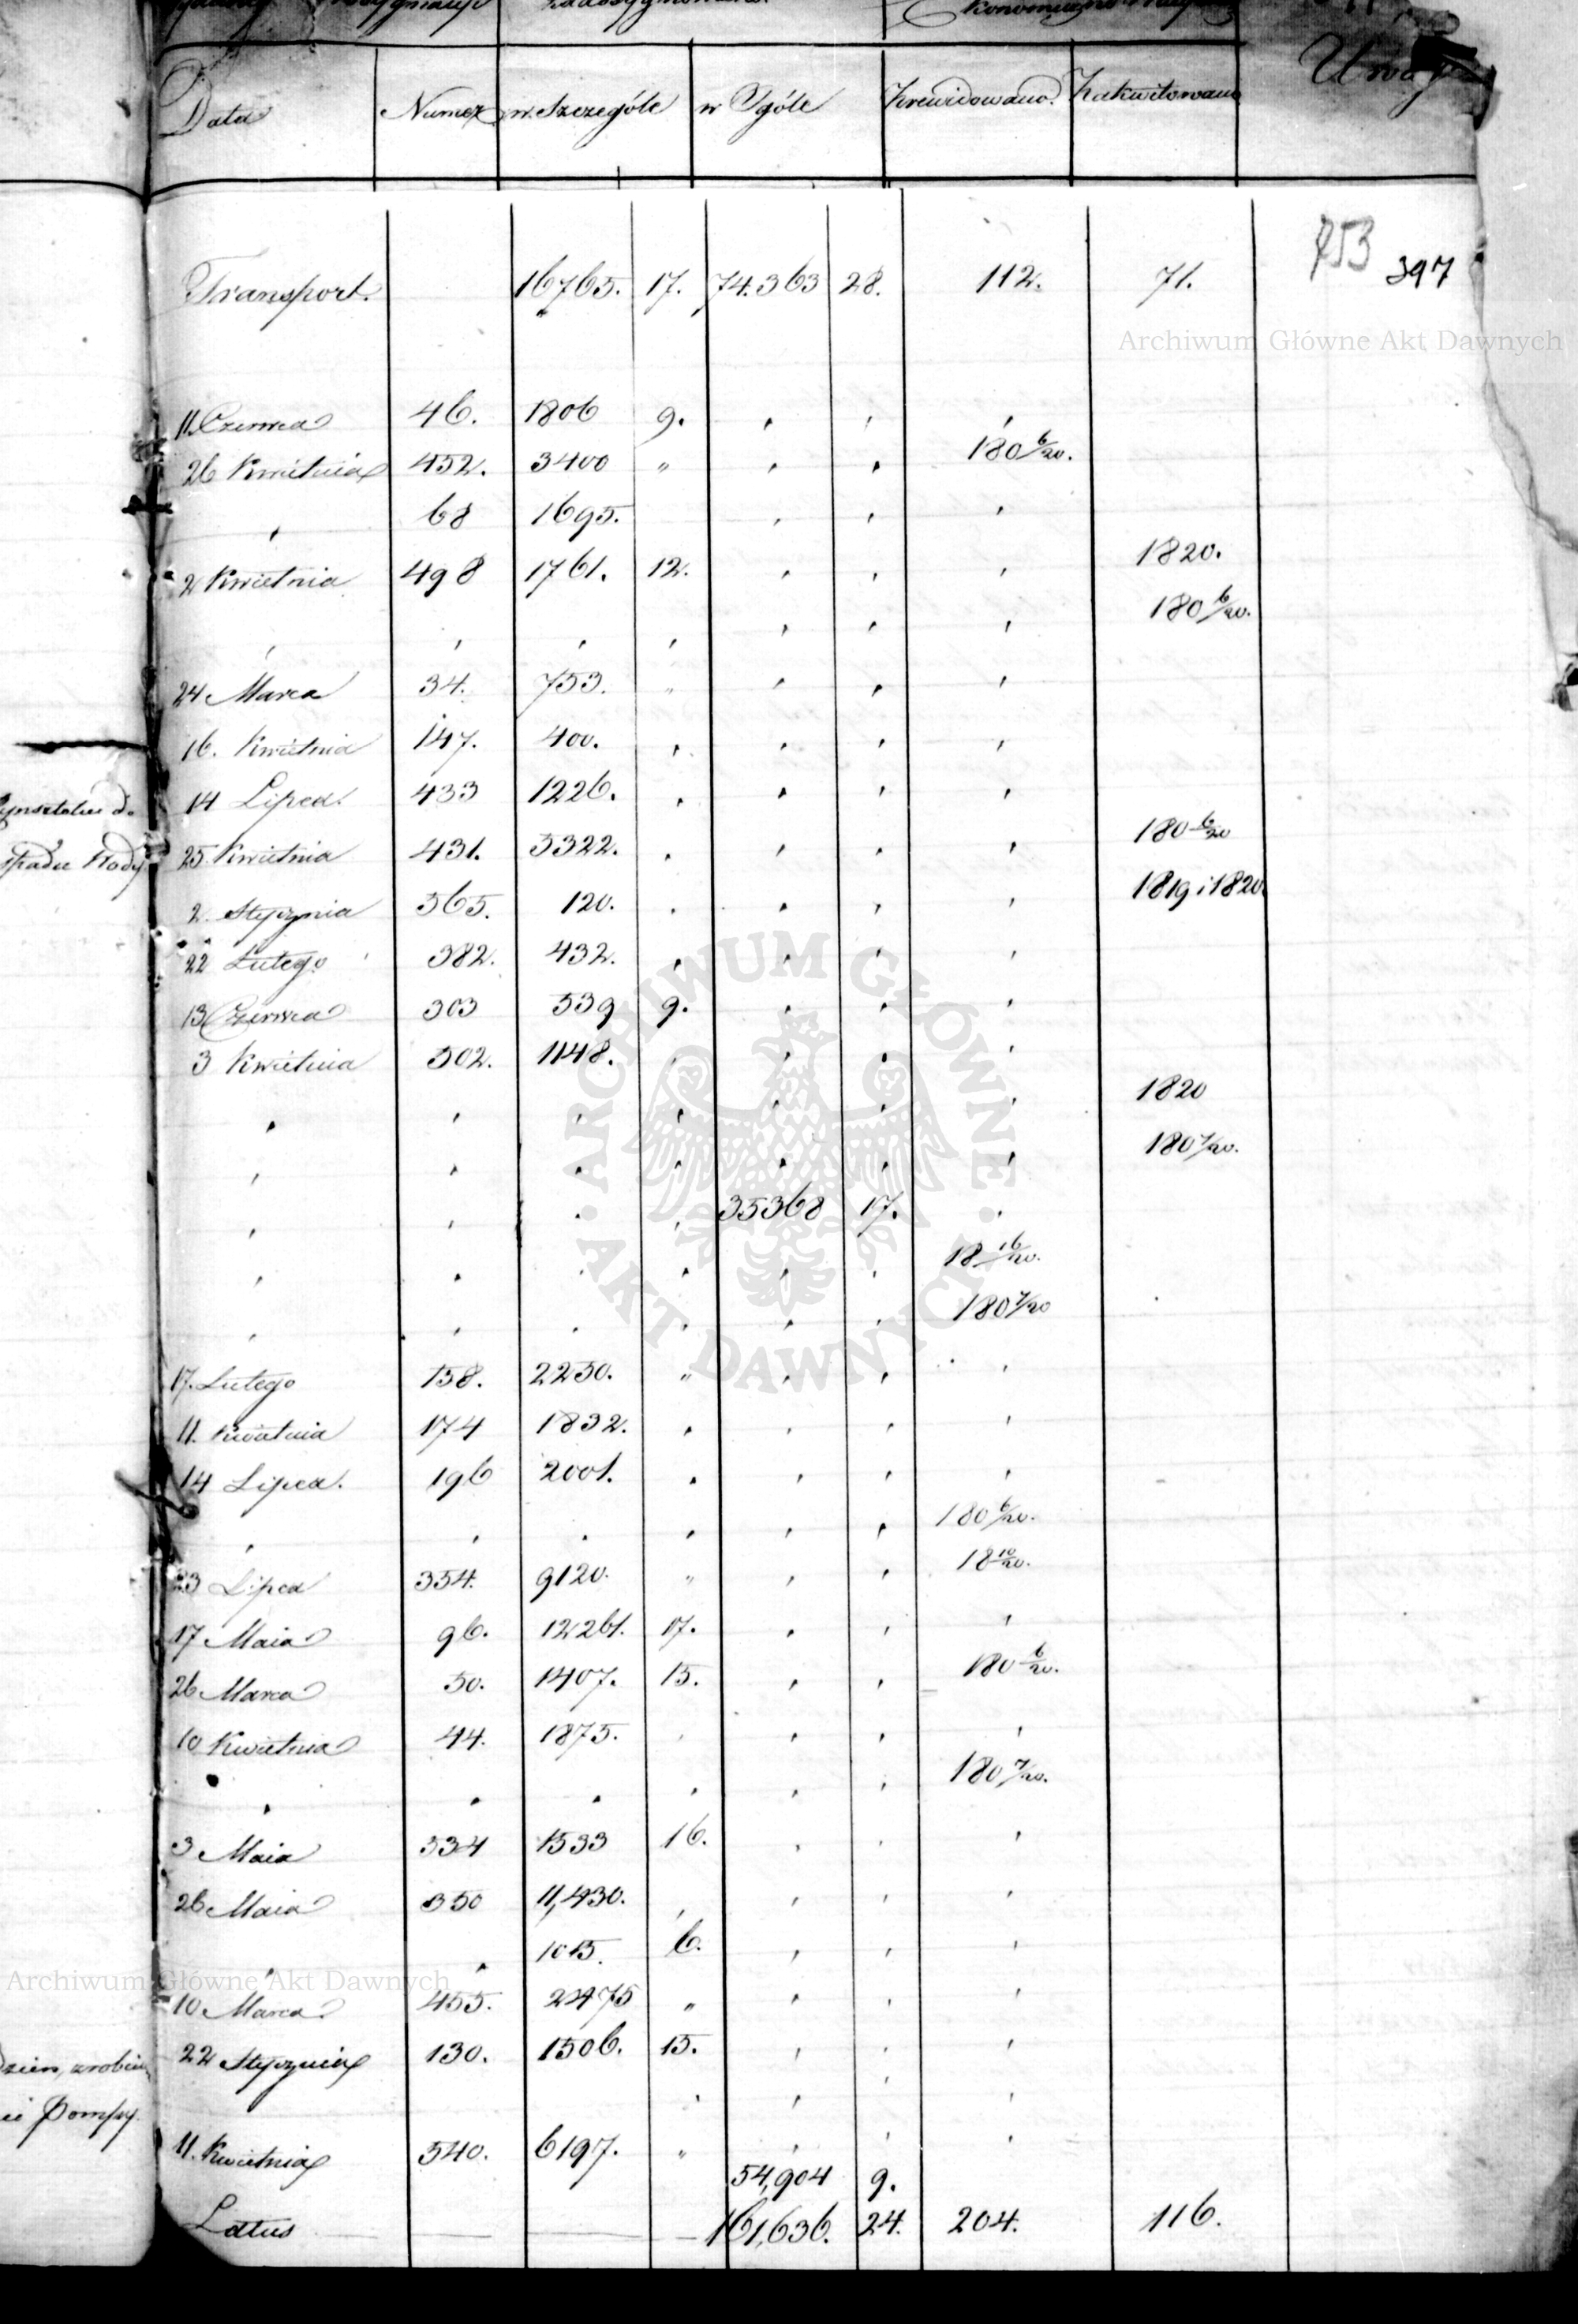 Data Numer w Szczególe w Ogóle Zrewidowano. Zakwitowano Uwagi
753 397
Transport. 16765. 17. 74.363 28. 112. 71.
Archiwum Główne Akt Dawnych
11. Czerwca 46. 1806 9. , , ,
26 Kwietnia 452. 3400 " , , 180 6/20.
, 68 1695. , , ,
2 Kwietnia 498 1761. 12. , , , 1820.
, , , , , , , 180 6/20.
24 Marca 34. 753. " , , ,
16. Kwietnia 147. 400. , , , ,
14 Lipca. 433 1226. , , , ,
25 Kwietnia 431. 5322. , , , , 180 6/20
2. Stycznia 565. 120. , , , , 1819 i 1820.
22 Lutego 382. 432. , , , ,
13 Czerwca 303 539 9. , , ,
3 Kwietnia 502. 1148. , , , ,
, , , , , , , 1820
, , , , , , , 180 7/20.
, , , , 35368 17. ,
, , , , , , 18 16/20.
, , , , , , 180 7/20
17. Lutego 158. 2250. " , , ,
11. Kwietnia 174 1832. , , , ,
14 Lipca. 196 2001. , , , ,
, , , , , , 180 6/20.
23 Lipca 354. 9120. " , , 18 10/20.
17 Maia 96. 12261. 17. , , ,
26 Marca 50. 1407. 15. , , 180 6/20.
10 Kwietnia 44. 1875. , , , ,
, , , , , , 180 7/20.
3 Maia 534 1533 16. , , ,
26 Maia 350 11,430. , , , ,
, , 1015. 6. , , ,
Archiwum Główne Akt Dawnych
10 Marca 455. 2475 " , , ,
22 Stycznia 130. 1506. 15. , , ,
, , , ,
11. Kwietnia 540. 6197. " , , ,
54,904 9.
Latus 161,636. 24. 204. 116.
ARCHIWUM GŁÓWNE AKT DAWNYCH
Wody
Pompy